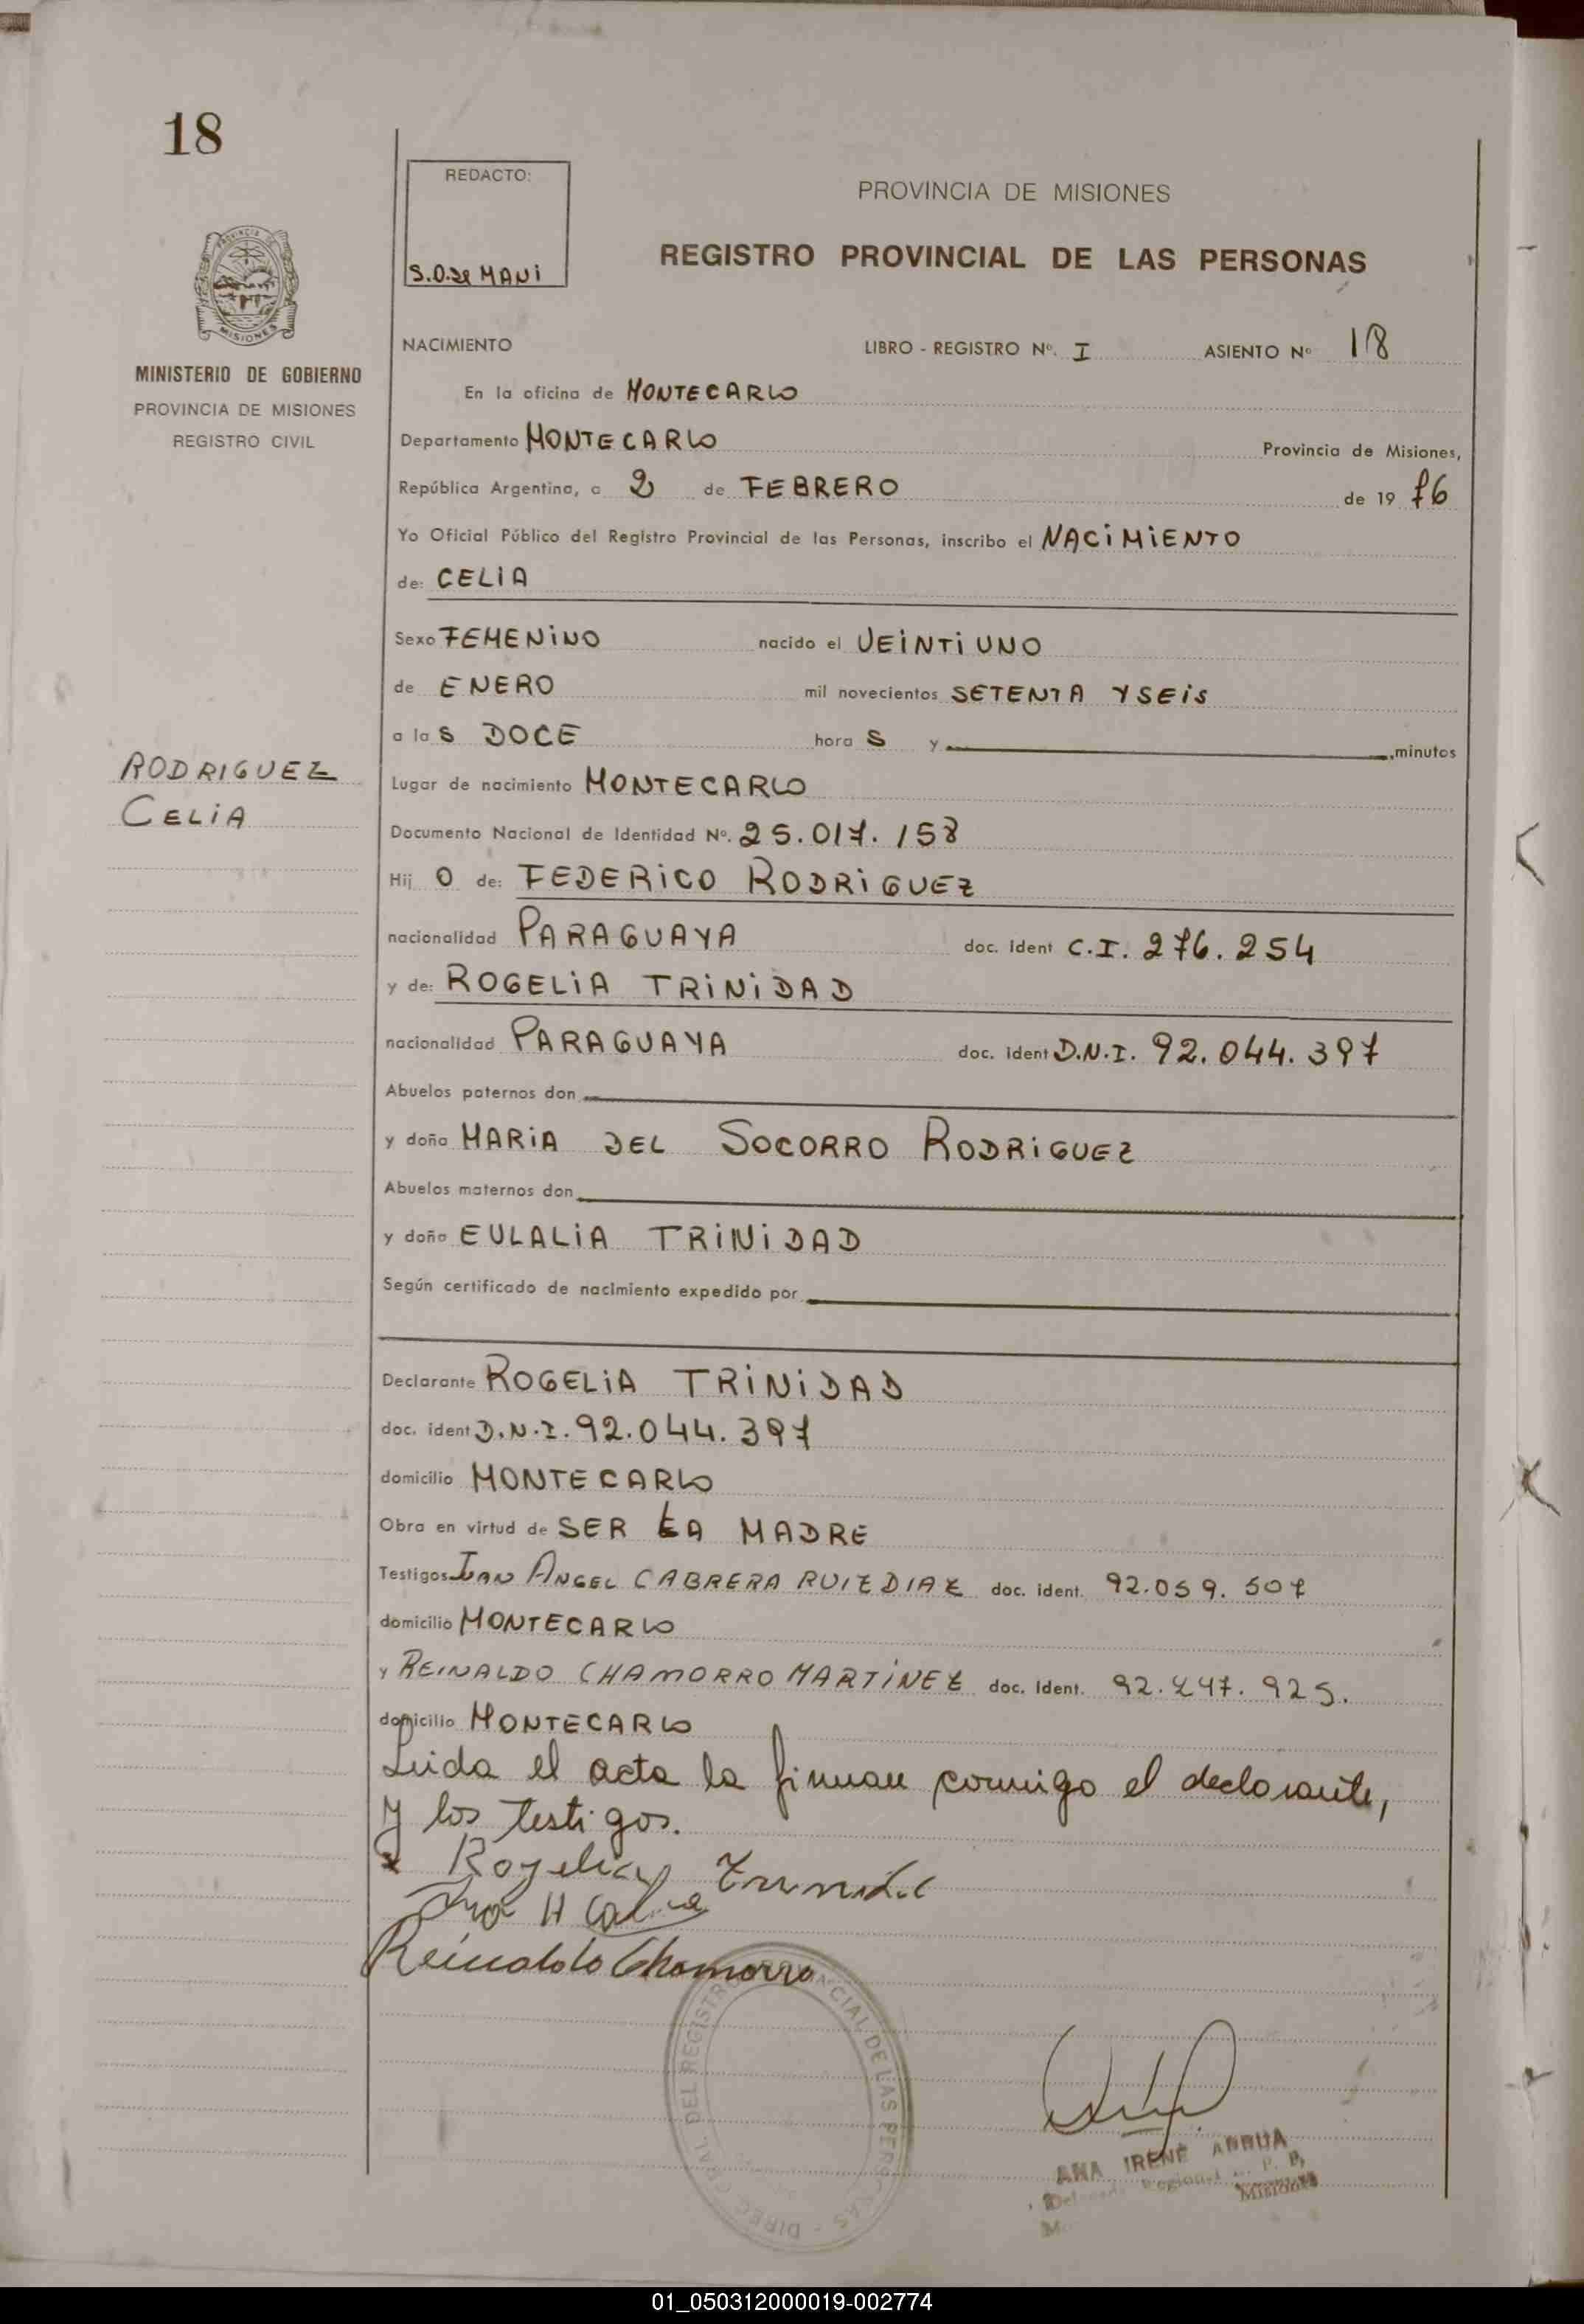 18
REDACTO:
PROVINCIA DE MISIONES
REGISTRO PROVINCIAL DE LAS PERSONAS
PROVINCIA DE
MISIONES
MINISTERIO DE GOBIERNO
PROVINCIA DE MISIONES
REGISTRO CIVIL
NACIMIENTO LIBRO - REGISTRO Nº. I ASIENTO Nº 18
En la oficina de MONTECARLO
Departamento MONTECARLO Provincia de Misiones,
República Argentina, a 2 de FEBRERO de 19 76
Yo Oficial Público del Registro Provincial de las Personas, inscribo el NACIMIENTO
de: CELIA
Sexo FEMENINO nacido el VEINTIUNO
de ENERO mil novecientos SETENTA Y SEIS
a las DOCE horas y minutos
RODRIGUEZ
CELIA
Lugar de nacimiento MONTECARLO
Documento Nacional de Identidad Nº. 25.017.158
Hij O de: FEDERICO RODRIGUEZ
nacionalidad PARAGUAYA doc. ident C.I. 276.254
y de: ROGELIA TRINIDAD
nacionalidad PARAGUAYA doc. ident D.N.I. 92.044.397
Abuelos paternos don
y doña MARIA DEL SOCORRO RODRIGUEZ
Abuelos maternos don
y doña EULALIA TRINIDAD
Según certificado de nacimiento expedido por
Declarante ROGELIA TRINIDAD
doc. ident D.N.I. 92.044.397
domicilio MONTECARLO
Obra en virtud de SER LA MADRE
Testigos JUAN ANGEL CABRERA RUIZ DIAZ doc. ident. 92.059.507
domicilio MONTECARLO
y REINALDO CHAMORRO MARTINEZ doc. ident. 92.247.925.
domicilio MONTECARLO
Leida el acta la firman conmigo el declarante,
y los testigos.
Rogelia
Reinaldo Chamorro
DIREC. GRAL. DEL REGISTRO PROVINCIAL DE LAS PERSONAS
ANA IRENE
Misiones
01_050312000019-002774